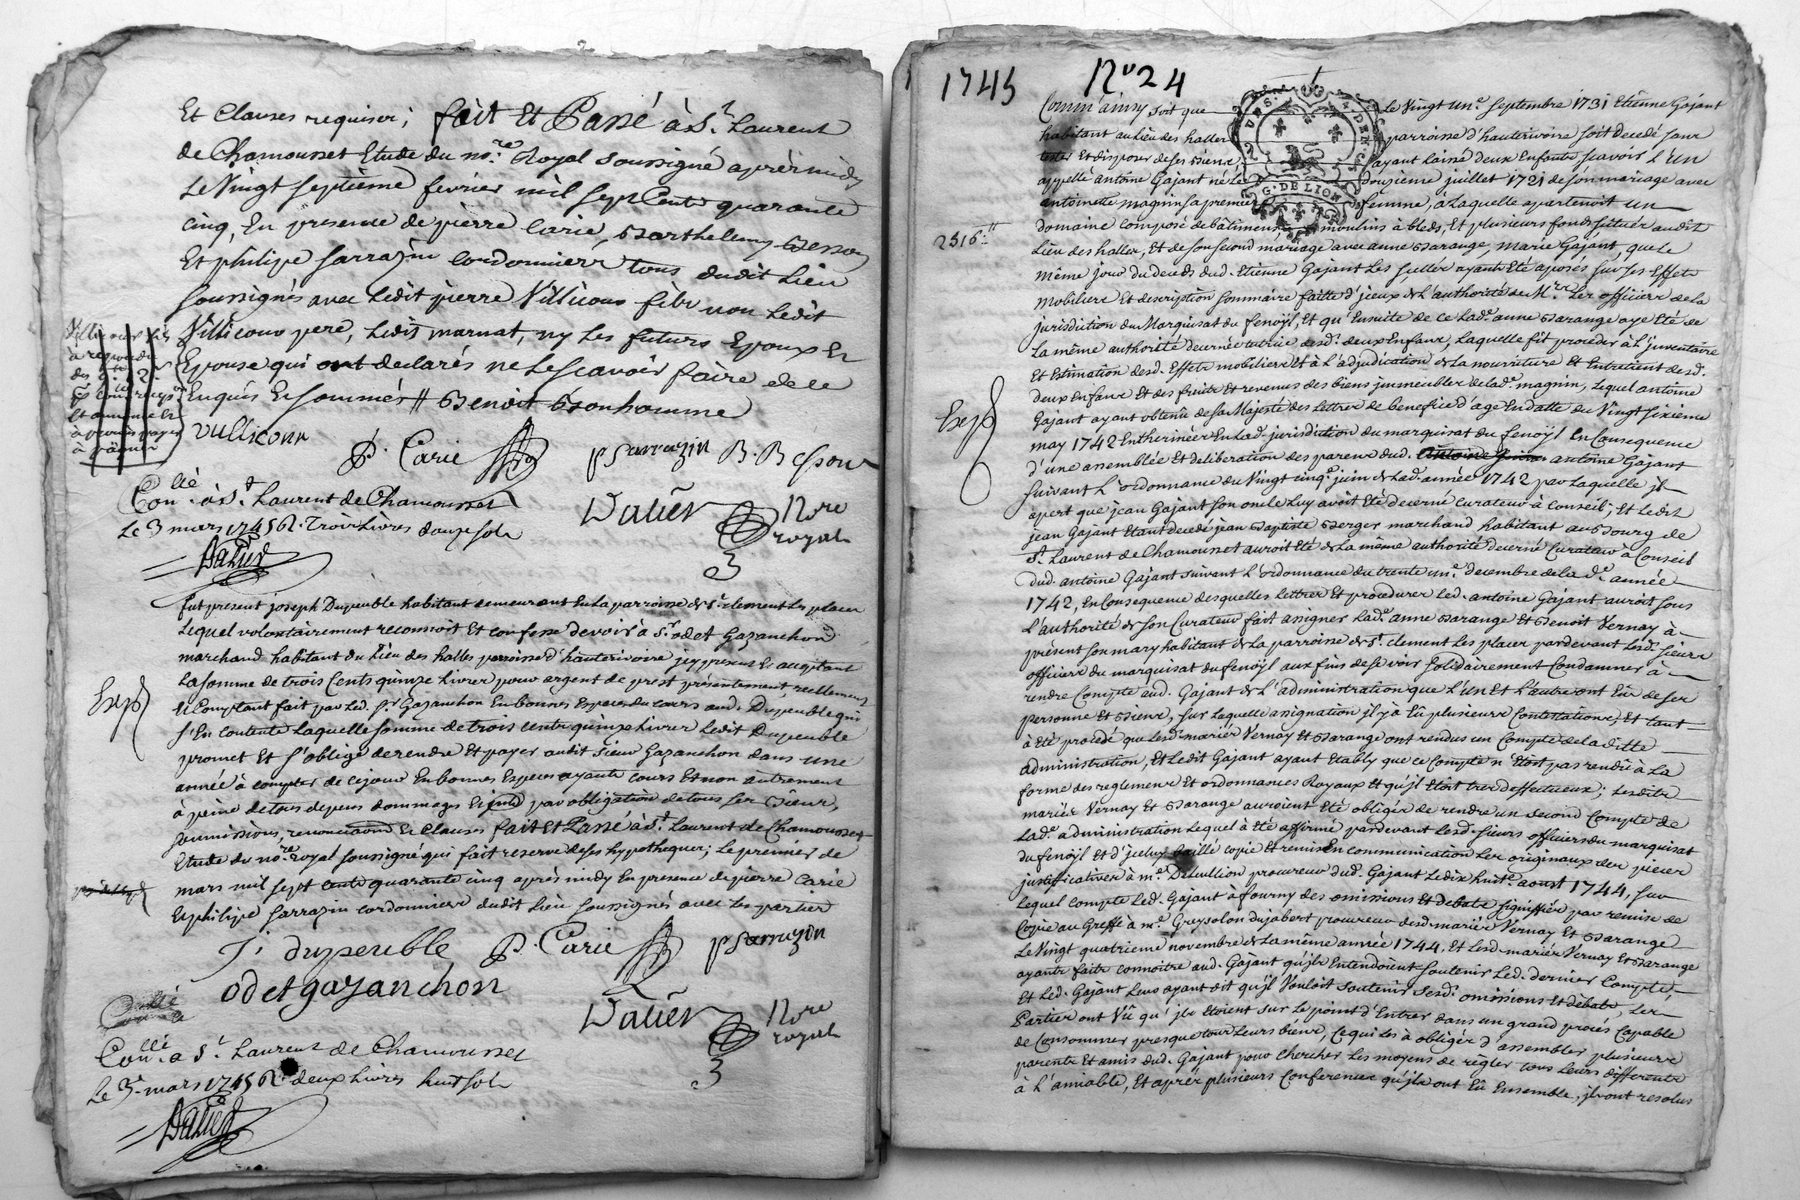 Et Clauses requises; fait Et Passé à St. Laurent
de Chamousset Etude du nore. Royal soussigné après midy
Le Vingt septième fevrier mil sept Cents quarante
cinq, En presence de pierre Carié, Barthelemy Besson
Et philipe sarrazin cordonniers tous dudit Lieu
soussignés avec Ledit pierre Villicous fils non Ledit
Villicous pere, Ledit marnat, ny Les futurs Epoux Et
Epouse qui ont declarés ne Le scavoir faire de ce
Enquis Et sommés // Benoit Bonhomme
Vullicous
P. Carié
pSarrazin B. Besson
Conllé. à St. Laurent de Chamousset
Le 3 mars 1745 R. Trois Livres douze sols
Dalier
Nore
royal
Dalier
fut present joseph Dupeuble habitant demeurant En La parroisse de St. clement Les places
Lequel volontairement reconnoit Et confesse devoir à Sr. odet Gazanchon
marchand habitant du Lieu des halles parroisse d'hauterivoire jcy present Et acceptant
La somme de trois Cents quinze Livres pour argent de prest présentement reellement
Et Comptant fait par Led. Sr. Gazanchon En bonnes Especes du cours aud. Dupeuble qui
s'En contente Laquelle somme de trois Cents quinze Livres Ledit Dupeuble
promet Et s'oblige de rendre Et payer audit Sieur Gazanchon dans une
année à compter de ce jour En bonnes Especes ayants cours Et non autrement
à peine de tous depens dommages Et jnts par obligation de tous ses Biens,
soumissions, renonciations Et Clauses fait Et Passé à St. Laurent de Chamousset
Etude du nore. royal soussigné qui fait reserve de ses hypotheques; Le premier de
mars mil sept cents quarante cinq après midy En presence de pierre Carié
Et philipe sarrazin cordonniers dudit Lieu soussignés avec Les parties
J. dupeuble P. Carié pSarrazin
odet gazanchon
Dalier
Nore
royal
Conllé. a St. Laurent de Chamousset
Le 3e mars 1745 R. deux Livres huit sols
Dalier
1745
No 24
G. DE LION
Comm'ainsy soit que Le Vingt une. septembre 1731 Etienne Gajant
habitant au Lieu des halles parroisse d'hauterivoire soit decedé sans
tester Et disposer de ses Biens ayant Laissé deux Enfants scavoir L'un
appellé antoine Gajant né Le douzieme juillet 1721 de son mariage avec
antoinette magnin sa premiere femme, à Laquelle apartenoit un
domaine composé de bâtiments, moulins à bleds, Et plusieurs fonds situés audit
Lieu des halles, Et de son second mariage avec anne Barange, Marie Gajant, que Le
même jour du deceds dud. Etienne Gajant Les scellés ayants Eté aposés sur ses Effets
mobiliers Et description sommaire faitte d'jceux de L'authorité de Mrs. Les officiers de la
jurisdiction du Marquisat du fenoÿl, Et qu'Ensuite de ce Lade. anne Barange aye Eté de
La même authorité decernée tutrice desd. deux Enfans, Laquelle fit proceder à L'jnventaire
Et Estimation desd. Effets mobiliers Et à L'adjudication de La nourriture Et Entretient desd.
deux Enfans Et des fruits Et revenus des biens jmmeubles de lad. magnin, Lequel antoine
Gajant ayant obtenu de sa Majesté des Lettres de benefice d'age En datte du Vingt sixieme
may 1742 Entherinées En Lad. jurisdiction du marquisat du fenoÿl En Consequence
d'une assemblée Et deliberation des parens dud. antoine Gajant
suivant L'ordonnance du Vingt cinqe. juin de Lad. année 1742 par Laquelle jl
apert que jean Gajant son oncle Luy avoit Eté decerné Curateur à Conseil; Et Ledit
jean Gajant Etant decedé jean Baptiste Berger marchand habitant au Bourg de
St. Laurent de Chamousset auroit Eté de La même authorité decerné Curateur à Conseil
dud. antoine Gajant suivant L'ordonnance du trente une. decembre de la de. année
1742, En Consequence desquelles Lettres Et procedures Led. antoine Gajant auroit sous
L'authorité de son Curateur fait assigner Lade. anne Barange Et Benoit Vernay à
présent son mary habitant de La parroisse de St. clement Les places pardevant Lesd. sieurs
officiers du marquisat du fenoÿl aux fins de se voir solidairement Condamner à
rendre Compte aud. Gajant de L'administration que L'un Et L'autre ont Eü de ses
personne Et Biens, sur Laquelle assignation jl y à Eû plusieurs Contestations, Et tant
à Eté procedé que Lesd. mariés Vernay Et Barange ont rendus un Compte de la ditte
administration, Et Ledit Gajant ayant Etably que ce Compte n'Etoit pas rendû à La
forme des reglements Et ordonnances Royaux Et qu'jl Etoit tres deffectueux; Lesdits
mariés Vernay Et Barange auroient Eté obligés de rendre un second Compte de
Lade. administration Lequel à Eté affirmé pardevant Lesd. sieurs officiers du marquisat
du fenoÿl Et d'jceluy baillé copie Et remis En communication Les originaux des pieces
justificatives à me. Delullion procureur dud. Gajant Le dix huite. aoust 1744, sur
Lequel compte Led. Gajant à fourny des omissions Et debats signiffiés par remise de
Copie au Greffe à me. Greysolon Dujabert procureur desd. mariés Vernay Et Barange
Le Vingt quatrieme novembre de La même année 1744. Et Lesd. mariés Vernay Et Barange
ayants faits connoitre aud. Gajant qu'jls Entendoient soutenir Led. dernier Compte,
Et Led. Gajant Leurs ayant dit qu'jl Vouloit soutenir sesd. omissions Et debats, Les
Parties ont Vü qu'jls Etoient sur Le point d'Entrer dans un grand procés Capable
de Consommer presque tous Leurs biens, Ce qui les à obligés d'assembler plusieurs
parents Et amis dud. Gajant pour chercher Les moyens de regler tous Leurs differents
à L'amiable, Et après plusieurs Conferences qu'jls ont Eû Ensemble, jls ont resolus